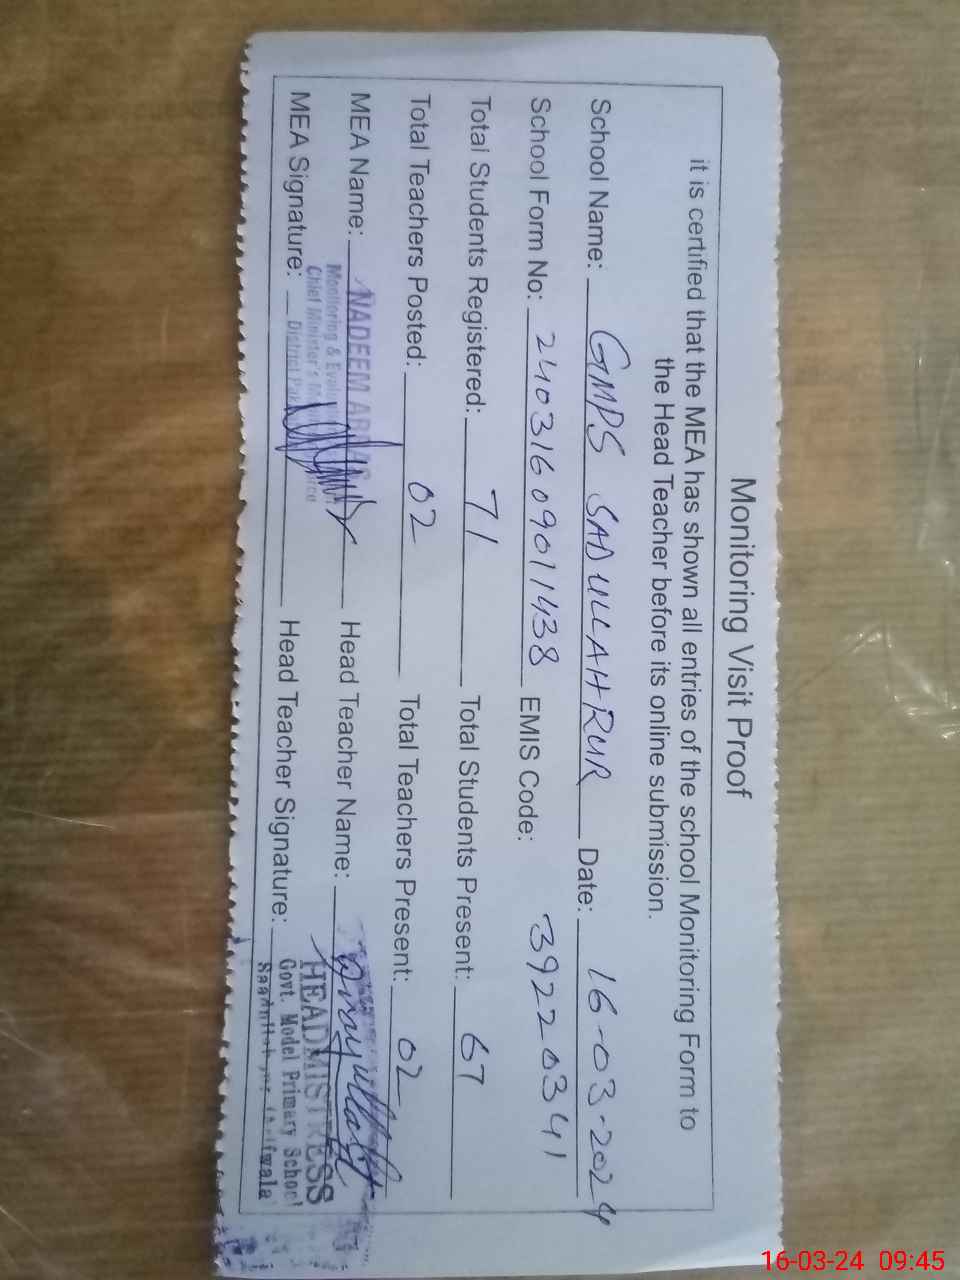 Monitoring Visit Proof
it is certified that the MEA has shown all entries of the school Monitoring Form to
the Head Teacher before its online submission.
School Name: GMPS SADULLAHPUR Date: 16-03-2024
School Form No: 24031609011438 EMIS Code: 39220341
Total Students Registered: 71 Total Students Present: 67
Total Teachers Posted: 02 Total Teachers Present: 02
MEA Name: NADEEM Head Teacher Name:
Monitoring &
Chief Minister's
MEA Signature: District Head Teacher Signature:
HEADMISTRESS
Govt. Model Primary School
16-03-24 09:45